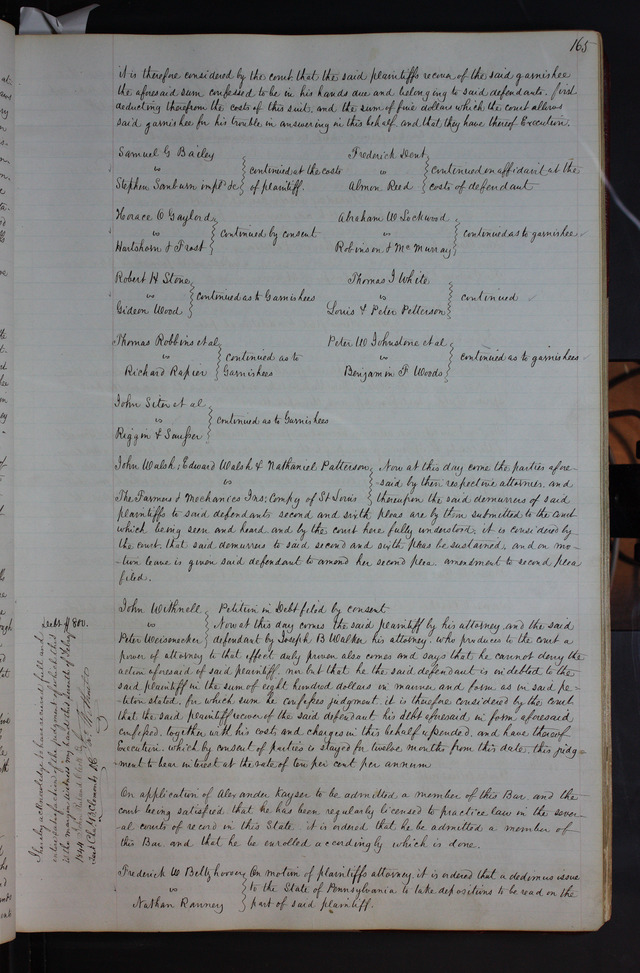 165
it is therefore considered by the court that the said plaintiffs recover of the said garnishee
the aforesaid sum confessed to be in his hands due and belonging to said defendants. first
deducting therefrom the costs of this suit, and the sum of five dollars which the court allows
said garnishee for his trouble in answering in this behalf and that they have thereof Execution.
Samuel G Bailey
vs
Stephen Sanburn impld &c
continued at the costs
of plaintiff.
Frederick Dent
vs
Almon Reed
continued on affidavit at the
costs of defendant
Horace O Gaylord
vs
Hartshorn & Frost
continued by consent
Abraham W Lockwood
vs
Robinson & McMurray
continued as to garnishee
Robert H Stone
vs
Gideon Wood
continued as to Garnishees
Thomas J White
vs
Louis & Peter Patterson
continued
Thomas Robbins et al
vs
Richard Rapier
continued as to
Garnishees
Peter W Johnstone et al
vs
Benjamin F Woods
continued as to garnishees
John Siter et al
vs
Riggin &
continued as to Garnishees
John Walsh, Edward Walsh & Nathaniel Patterson
vs
The Farmers & Mechanics Ins: Compy of St Louis
Now at this day come the parties afore-
-said by their respective attornies, and
thereupon the said demurrers of said
plaintiffs to said defendants second and sixth pleas are by them submitted to the court
which being seen and heard and by the court here fully understood, it is considered by
the court, that said demurrers to said second and sixth pleas be sustained, and on mo-
-tion leave is given said defendant to amend her second plea. amendment to second plea
filed.
John Withnell
vs
Peter Weissenecker
Petition in Debt filed by consent
Now at this day comes the said plaintiff by his attorney and the said
defendant by Joseph B Walker his attorney. who produces to the court a
power of attorney to that effect duly proven also comes and says that he cannot deny the
action aforesaid of said plaintiff, nor but that he the said defendant is indebted to the
said plaintiff in the sum of eight hundred dollars in manner and form as in said pe-
-tition stated, for which sum he confesses judgment. it is therefore considered by the court
that the said plaintiff recover of the said defendant his debt aforesaid in form aforesaid
confessed, together with his costs and charges in this behalf expended, and have thereof
Execution. which by consent of parties is stayed for twelve months from this date. this judg-
-ment to bear interest at the rate of ten per cent per annum
Debt $800.
I hereby acknowledge to have received full and
entire satisfaction of the judgment of which this
is the margin. witness my hand this
1844
On application of Alexander Kayser to be admitted a member of this Bar. and the
court being satisfied that he has been regularly licensed to practice law in the sever-
al courts of record in this State. it is ordered that he be admitted a member of
this Bar. and that he be enrolled accordingly which is done.
Frederick W Beltzhoover
vs
Nathan Ranney
On motion of plaintiffs attorney, it is ordered that a dedimus issue
to the State of Pennsylvania to take depositions to be read on the
part of said plaintiff.